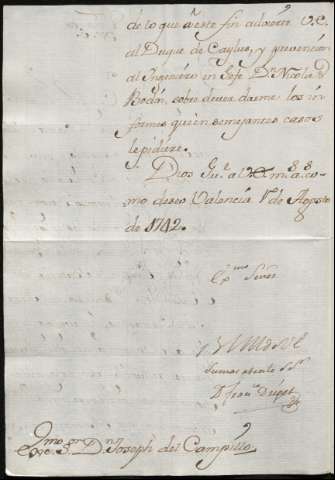 de lo que à este fin advierte V.E.
al Duque de Caylus, y prevencion
al Ingeniero en Gefe Dn. Nicolas
Bodin, sobre dever darme los in
formes que en semejantes casos
le pidiere.
Dios Gu.e a V.E. m.s a.s co-
mo deseo Valencia 1º de Agosto
de 1742.
Exmo Señor
Dn Fran.co
Exmo Sr. Dn Joseph del Campillo.